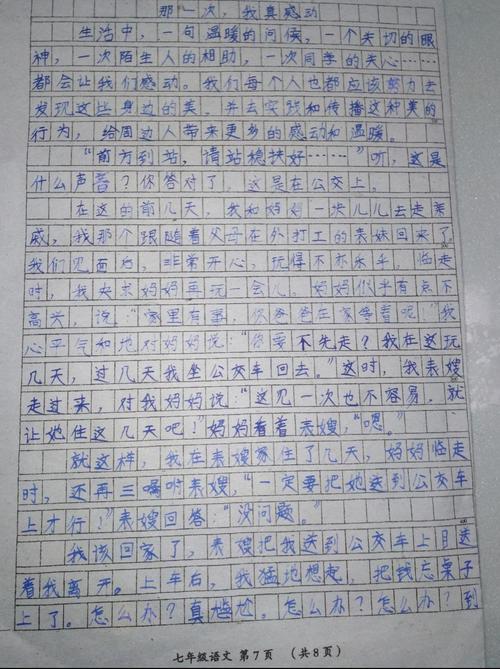 那一次，我真感动
生活中，一句温暖的问候，一个关切的眼
神，一次陌生人的相助，一次同学的关心……
都会让我们感动。我们每个人也都应该努力去
发现这些身边的美，并去实践和传播这种美的
行为，给周边人带来更多的感动和温暖。
“前方到站，请站稳扶好……”听，这是
什么声音？你答对了，这是在公交上。
在这的前几天，我和妈妈一块儿去走亲
戚，我那个跟随着父母在外打工的表妹回来了，
我们见面后，非常开心，玩得不亦乐乎，临走
时，我央求妈妈再玩一会儿。妈妈似乎有点不
高兴，说：“家里有事，你爸爸在家等着呢！”我
心平气和地对妈妈说：“你要不先走？我在这玩
几天，过几天我坐公交车回去。”这时，我表嫂
走过来，对我妈妈说：“这见一次也不容易，就
让她住这几天吧！”妈妈看着表嫂，“嗯。”
就这样，我在表嫂家住了几天，妈妈临走
时，还再三嘱咐表嫂，“一定要把她送到公交车
上才行！”表嫂回答：“没问题。”
我该回家了，表嫂把我送到公交车上目送
着我离开。上车后，我猛地想起，把钱忘桌子
上了。怎么办？真尴尬，怎么办？怎么办？到
七年级语文 第7页 （共8页）